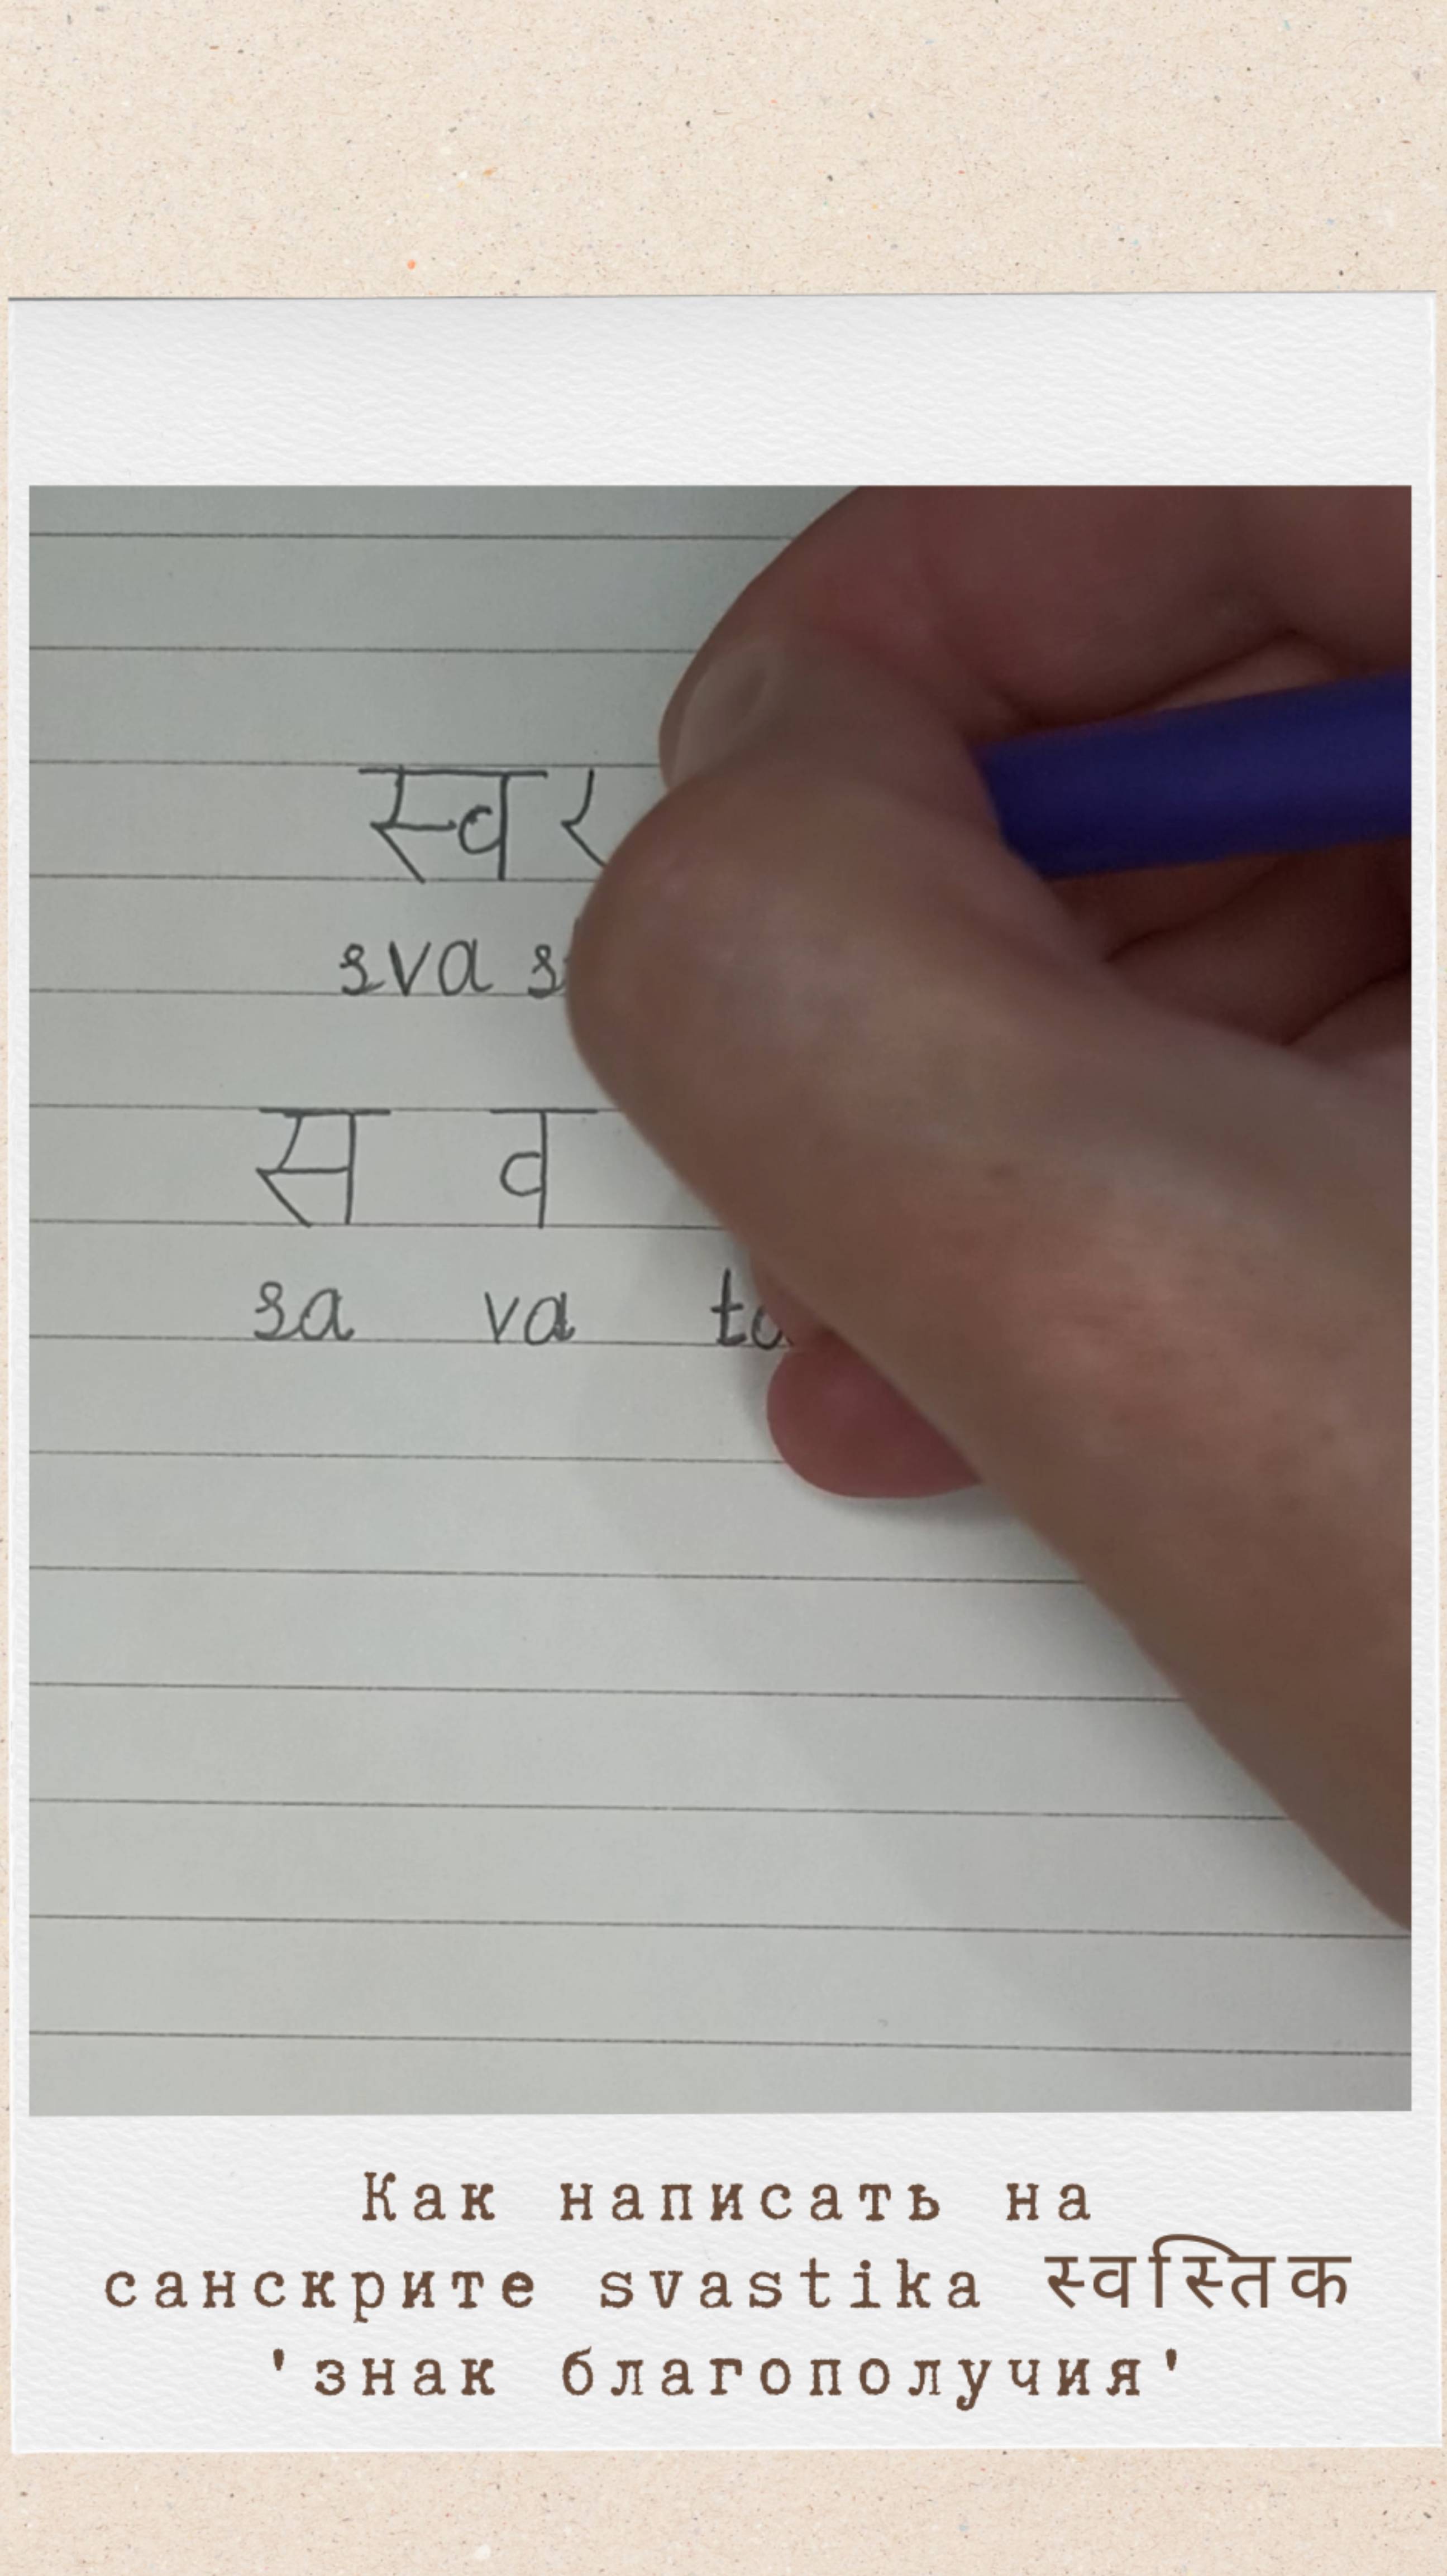 स्व
sva
स व
sa va
Как написать на
санскрите svastika स्वस्तिक
'знак благополучия'